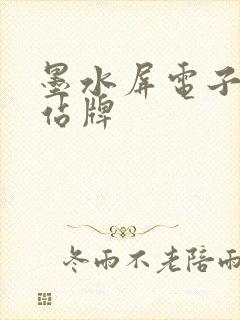 墨水屏電子
佔牌
冬雨不老陪雨